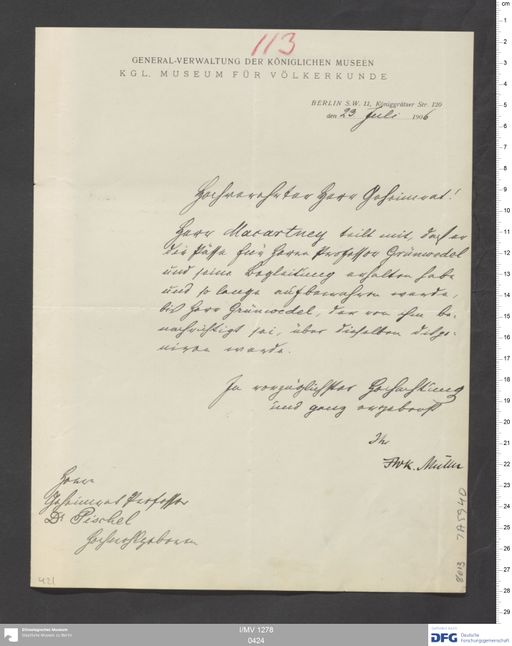 113
GENERAL-VERWALTUNG DER KÖNIGLICHEN MUSEEN
KGL. MUSEUM FÜR VÖLKERKUNDE
BERLIN S.W. 11, Königgrätzer Str. 120
den 23 Juli 1906
Hochverehrter Herr Geheimrat!
Herr Macartney teilt mit, daß er
die Pässe für Herrn Professor Grünwedel
und seine Begleitung erhalten habe
und so lange aufbewahren werde,
bis Herr Grünwedel, der von ihm be-
nachrichtigt sei, über dieselben dispo-
niren werde.
In vorzüglichster Hochachtung
und ganz ergebenst
Ihr
FWK. Müller
Herrn
Geheimrat Professor
Dr Pischel
Hochwohlgeboren
421
Ethnologisches Museum
Staatliche Museen zu Berlin
I/MV 1278
0424
DFG
Deutsche
Forschungsgemeinschaft